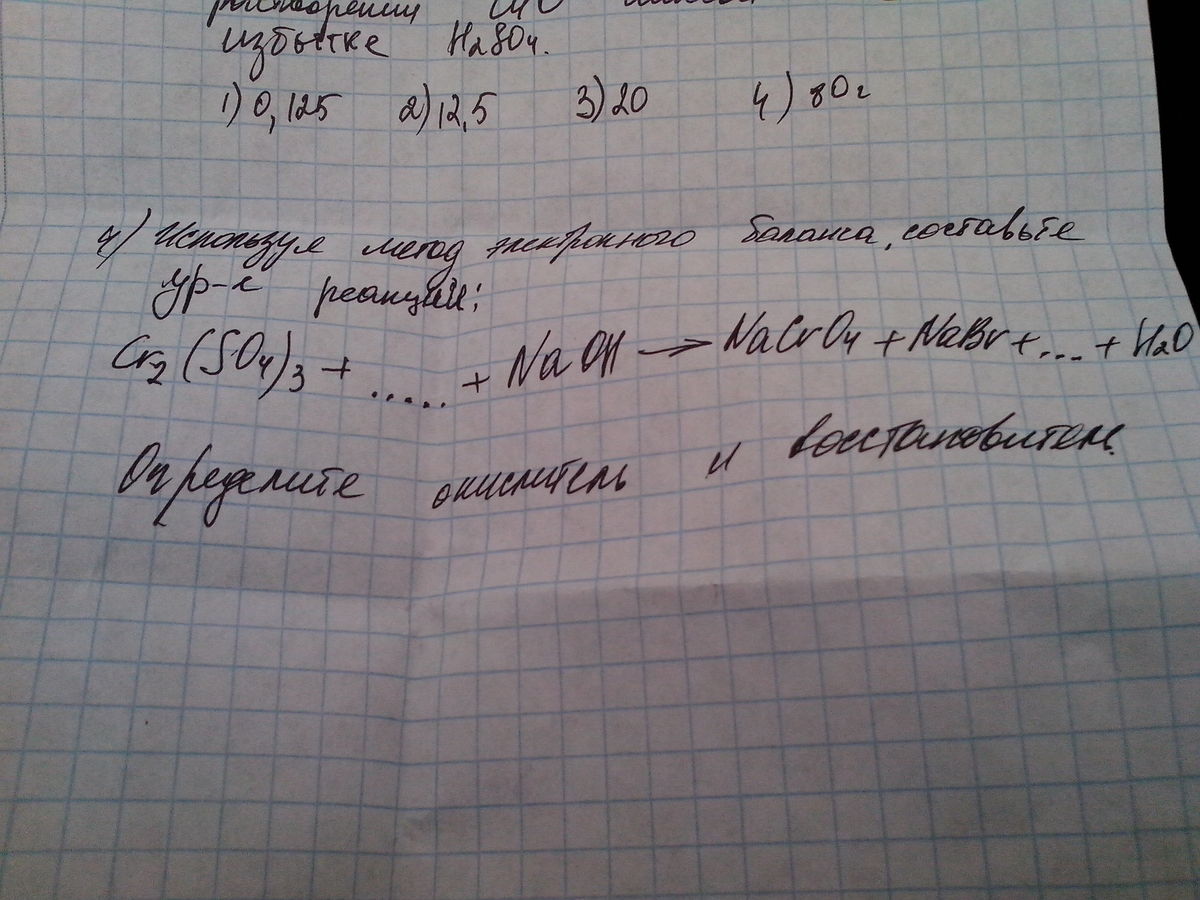 растворении CuO
избытке H2SO4.
1) 0,125 2) 12,5 3) 20 4) 80 г
4) Используя метод электронного баланса, составьте
ур-е реакции:
Cr2(SO4)3 + ..... + NaOH → NaCrO4 + NaBr + .... + H2O
Определите окислитель и восстановитель.